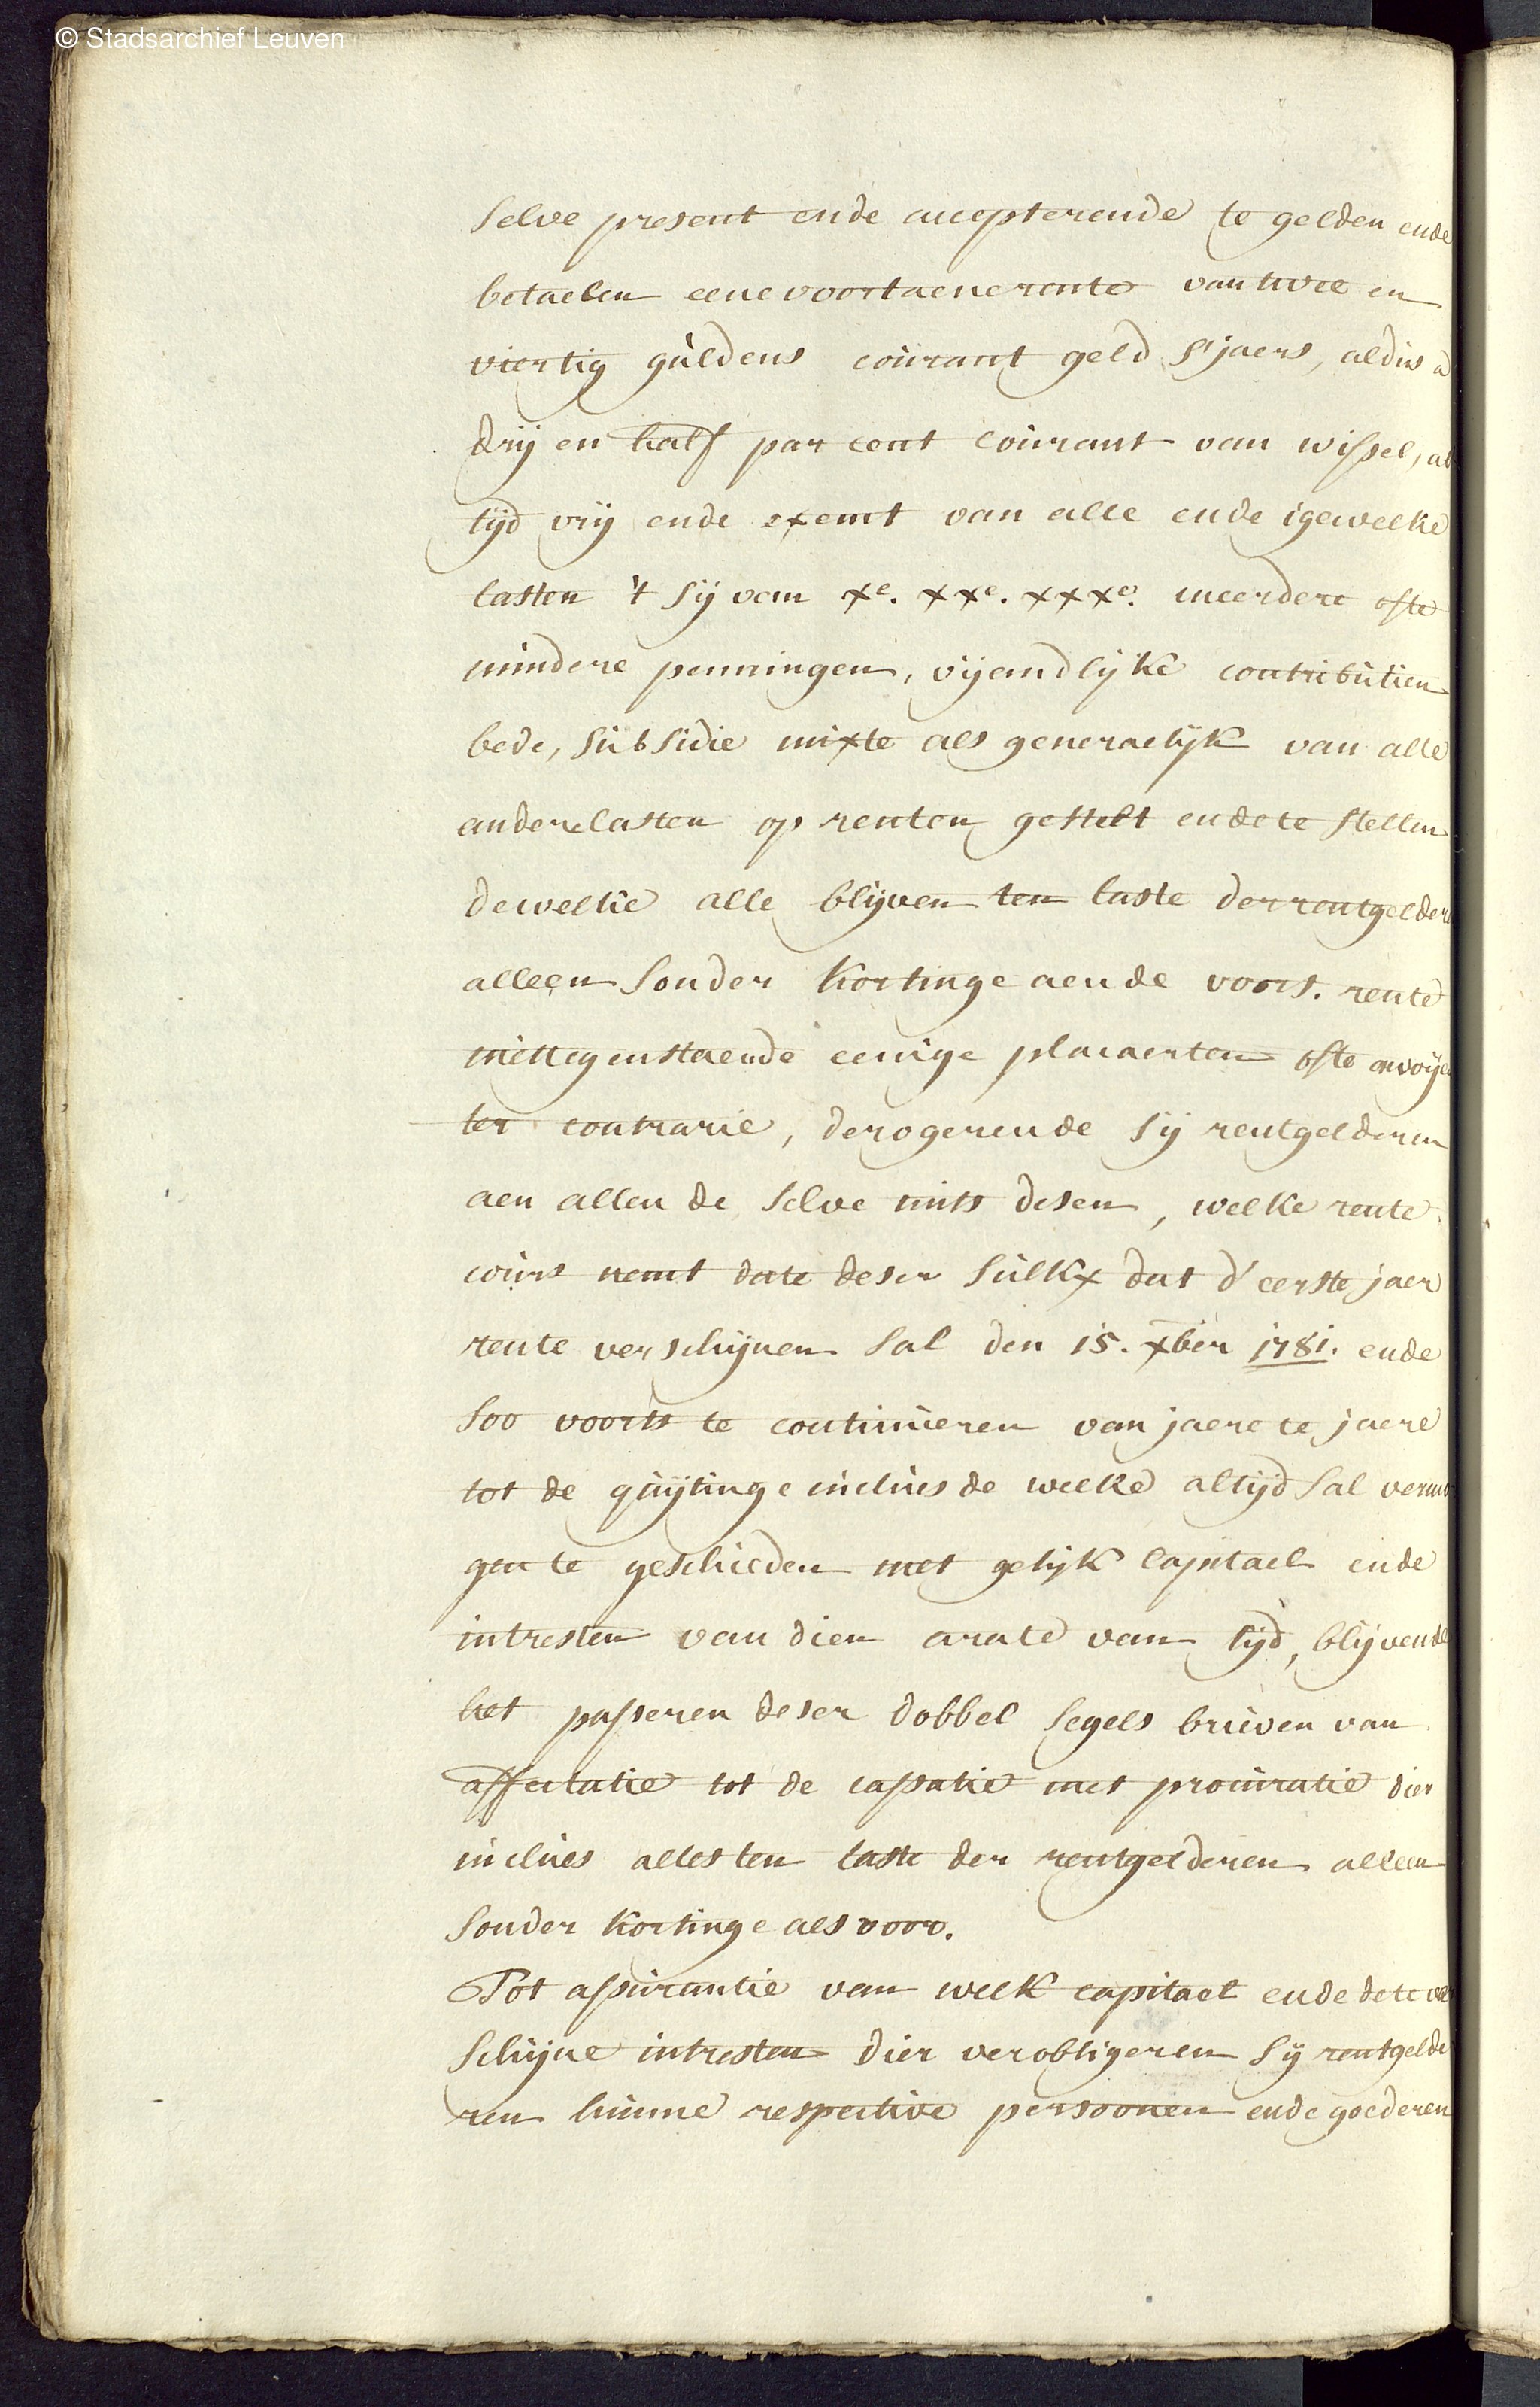 © Stadsarchief Leuven
selve present ende accepterende te gelden ende
betaelen eene voortaene rente van twee en
viertig guldens courant geld s'jaers, aldus a
drij en half par cent courant van wissel, al
tijd vrij ende exemt van alle ende igewelke
lasten 't sij van xe. xxe. xxxe. meerdere ofte
mindere penningen, vijandlijke contributien
bede, subsidie mixte als generaelijk van alle
andere lasten op renten gestelt ende te stellen
dewelke alle blijven ten laste der rentgeldere
alleen sonder kortinge aen de voors. rente
niettegenstaende eenige placaerten ofte
ter contrarie, derogerende sij rentgelderen
aen allen de selve mits desen, welke rente
cours nemt date deser sulkx dat d'eerste jaer
rente verschijnen sal den 15. xber 1781. ende
soo voorts te continueren van jaere te jaere
tot de quijtinge inclues de welke altijd sal vermo
gen te geschieden met gelijk capitael ende
intresten van dien arate van tijd, blijvende
het passeren deser dobbel segels brieven van
affectatie tot de cassatie met procuratie dier
inclues alles ten laste der rentgelderen alleen
sonder kortinge als voor.
Tot assurantie van welk capitael ende de te ver
schijne intresten dier verobligeren sij rentgelde
ren hunne respective persoonen ende goederen